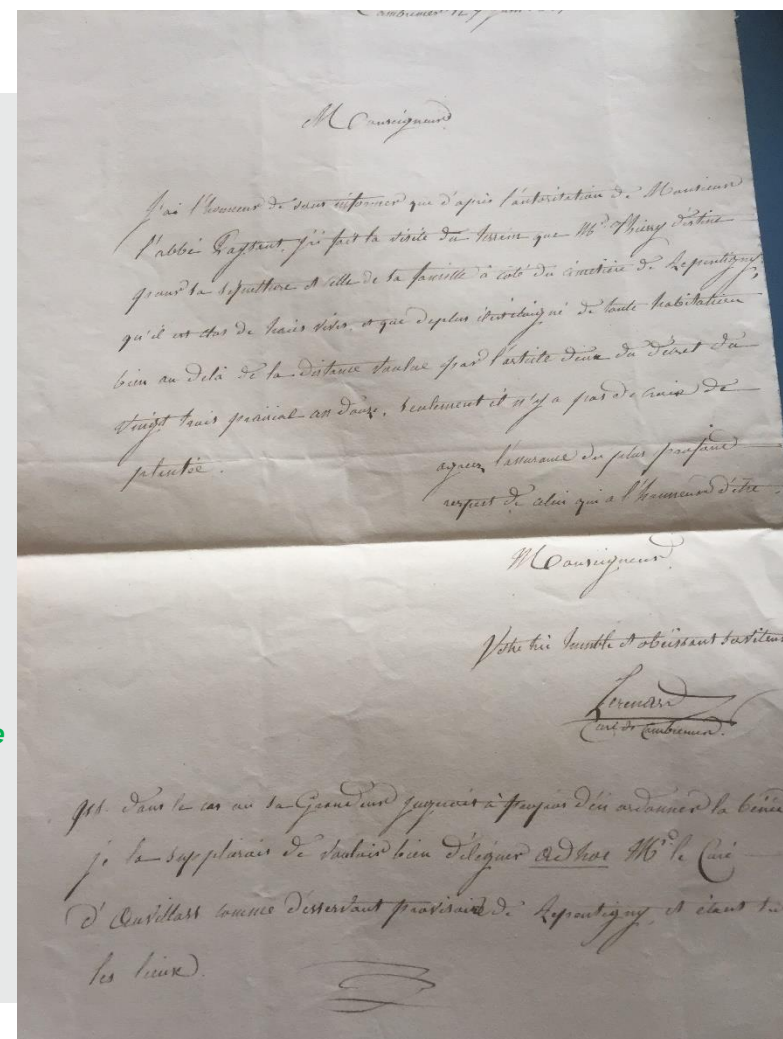 Cambremer le 7 juin
Monseigneur
J'ai l'honneur de vous informer que d'après l'autorisation de Monsieur
l'abbé j'ai fait la visite du terrein que Mr. Thierry destine
pour sa sepulture et celle de sa famille à coté du cimetière de Repentigny,
qu'il est clos de haies vives, et que deplus il est éloigné de toute habitation
bien au delà de la distance voulue par l'article deux du décret du
vingt trois prairial an douze, seulement il n'y a pas de croix de
plantée. agréez l'assurance du plus profond
respect de celui qui a l'honneur d'être
Monseigneur
Votre très humble et obéissant serviteur
Lerenard
Curé de Cambremer.
PSt. dans le cas ou sa Grandeur jugerait à propos d'en ordonner la béné
je la supplierais de vouloir bien déléguer ad hoc Mr. le Curé
d'Auvillars comme desservant provisoire de Repentigny, et étant
les lieux.
e